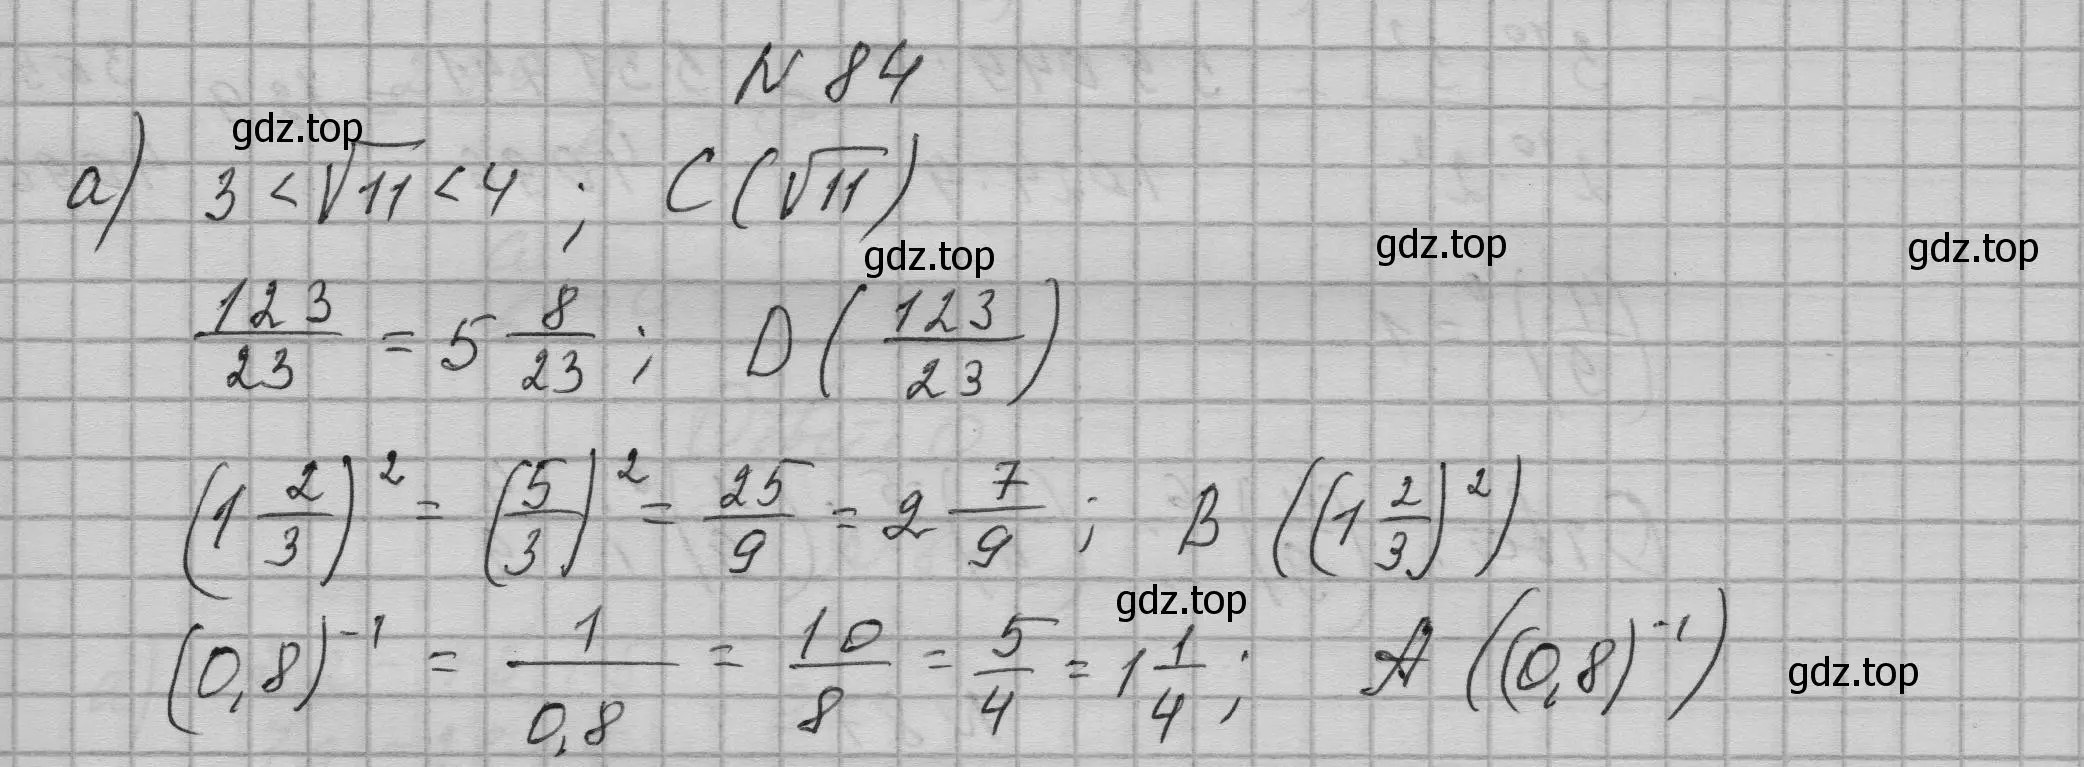 N 84
gdz.top
а) 3 < √11 < 4 ; C (√11)
gdz.top gdz.top gdz.top
123/23 = 5 8/23 ; D (123/23)
(1 2/3)² = (5/3)² = 25/9 = 2 7/9 ; B ((1 2/3)²)
gdz.top
(0,8)⁻¹ = 1/0,8 = 10/8 = 5/4 = 1 1/4 ; A ((0,8)⁻¹)
gdz.top